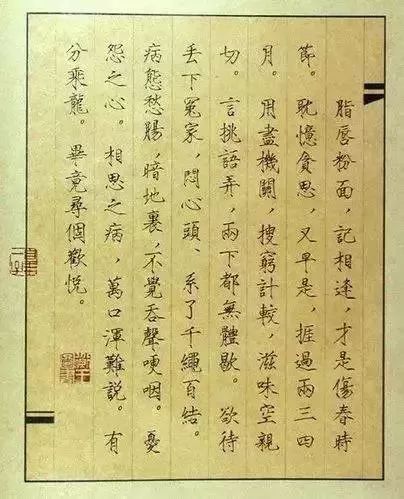 脂唇粉面，記相逢，才是傷春時
節。耽憶貪思，又早是，捱過兩三四
月。用盡機關，搜窮計較，滋味空親
切。言挑語弄，兩下都無體歇。欲待
丟下冤家，悶心頭、系了千繩百結。
病態愁腸，暗地裏，不覺吞聲哽咽。憂
怨之心。相思之病，萬口渾難說。有
分乘龍。畢竟尋個歡悅。